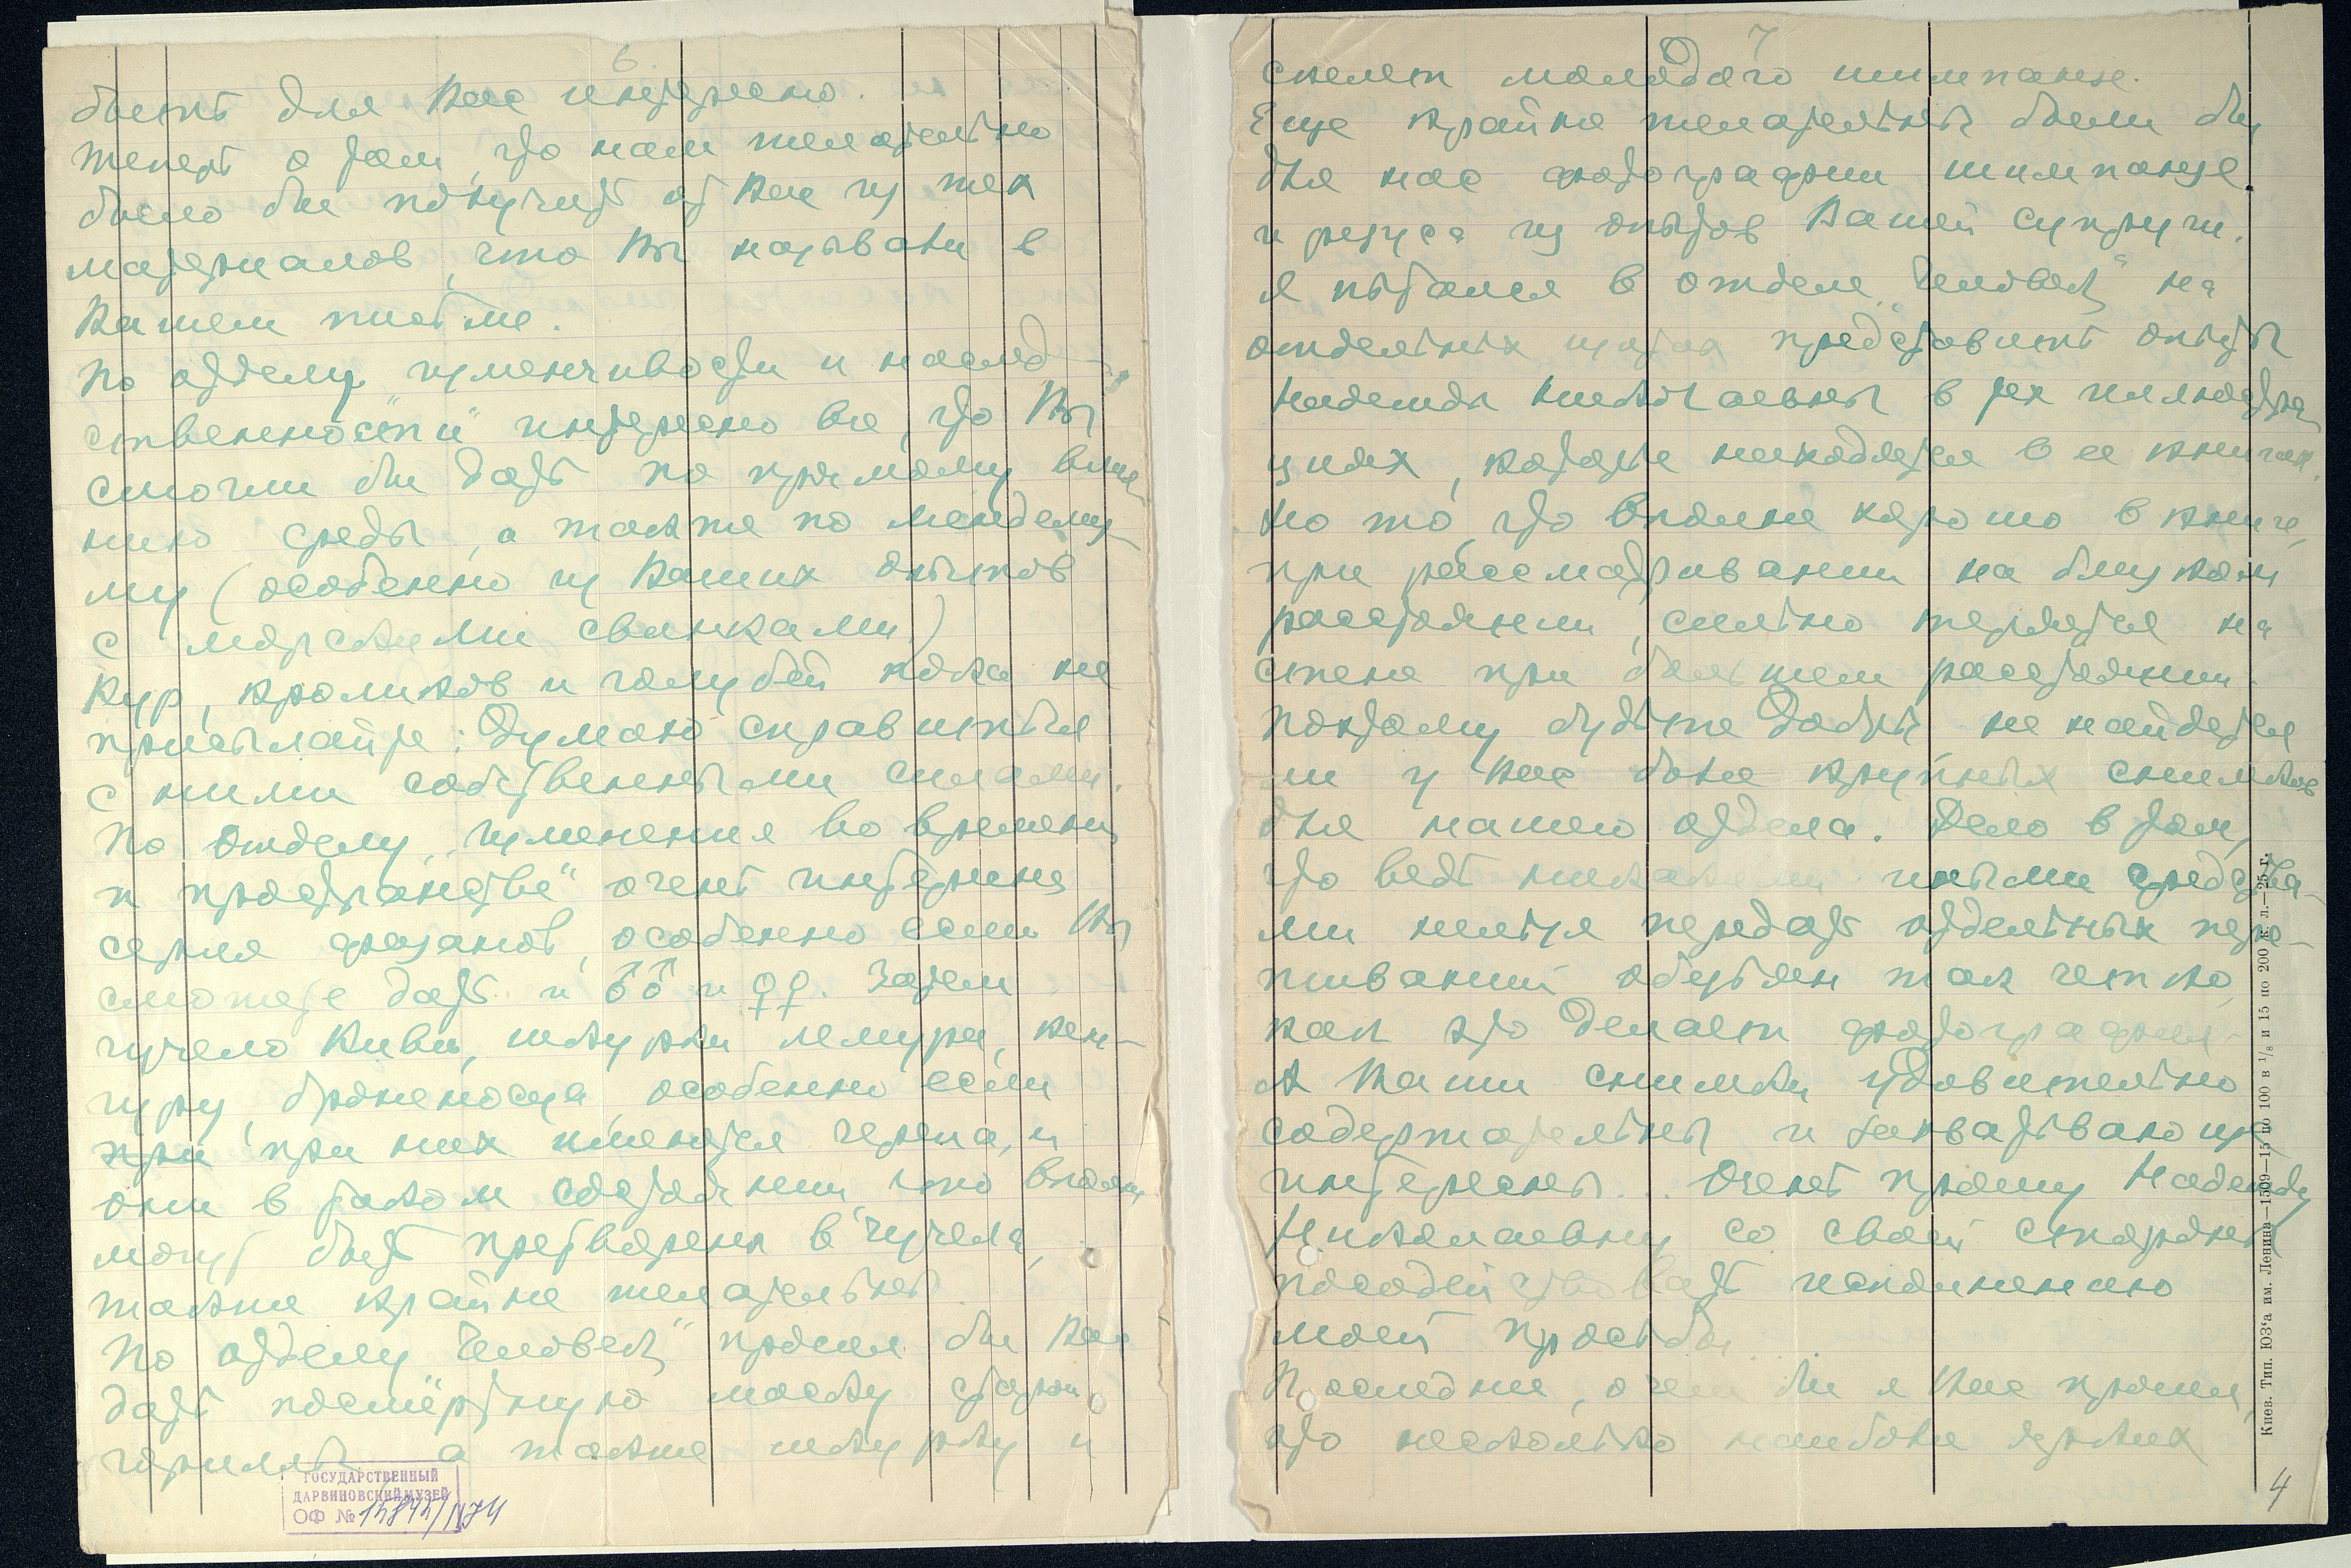 6.
быть для Вас интересно.
Теперь о том, что нам желательно
было бы получить от Вас из тех
материалов, что Вы называли в
Вашем письме.
По отделу „изменчивости и наслед-
ственности" интересно все, что Вы
смогли бы дать по прямому влия-
нию среды, а также по менделиз-
му (особенно из Ваших опытов
с морскими свинками)
Кур, кроликов и голубей пока не
присылайте: Думаю справиться
с ними собственными силами.
По отделу „изменения во времени
и пространстве" очень интересна
серия фазанов, особенно если Вы
сможете дать и ♂♂ и ♀♀. Затем
чучело Киви, шкурки лемура, кен-
гуру, броненосца, особенно если
при при них имеются черепа, и
они в таком состоянии, что вполне
могут быть претворены в чучела,
также крайне желательны.
По отделу „Человек" просил бы Вас
дать посмертную маску
гориллы, а также шкурку и
ГОСУДАРСТВЕННЫЙ
ДАРВИНОВСКИЙ МУЗЕЙ
ОФ №
7
скелет молодого шимпанзе.
Еще крайне желательны были бы
для нас фотографии шимпанзе
и резуса из опытов Вашей супруги.
Я пытался в отделе „Человек" на
отдельных щитах представить опыты
Надежды Николаевны в тех иллюстра-
циях, которые находятся в ее книгах.
Но то, что вполне хорошо в книге,
при рассматривании на близком
расстоянии, сильно теряется на
стене при большем расстоянии.
Поэтому будьте добры, не найдется
ли у Вас более крупных снимков
для нашего отдела. Дело в том,
что ведь никакими иными средства-
ми нельзя передать отдельных пере-
живаний обезьян так четко,
как это делает фотография.
А Ваши снимки удивительно
содержательны и захватывающе
интересны... Очень прошу Надежду
Николаевну со своей стороны
посодействовать исполнению
моей просьбы...
Последнее, о чем бы я Вас просил,
это несколько наиболее ярких
Киев. Тип. ЮЗ'а им. Ленина—1509—15 по 100 в 1/8 и 15 по 200 к. л.—25 г.
4